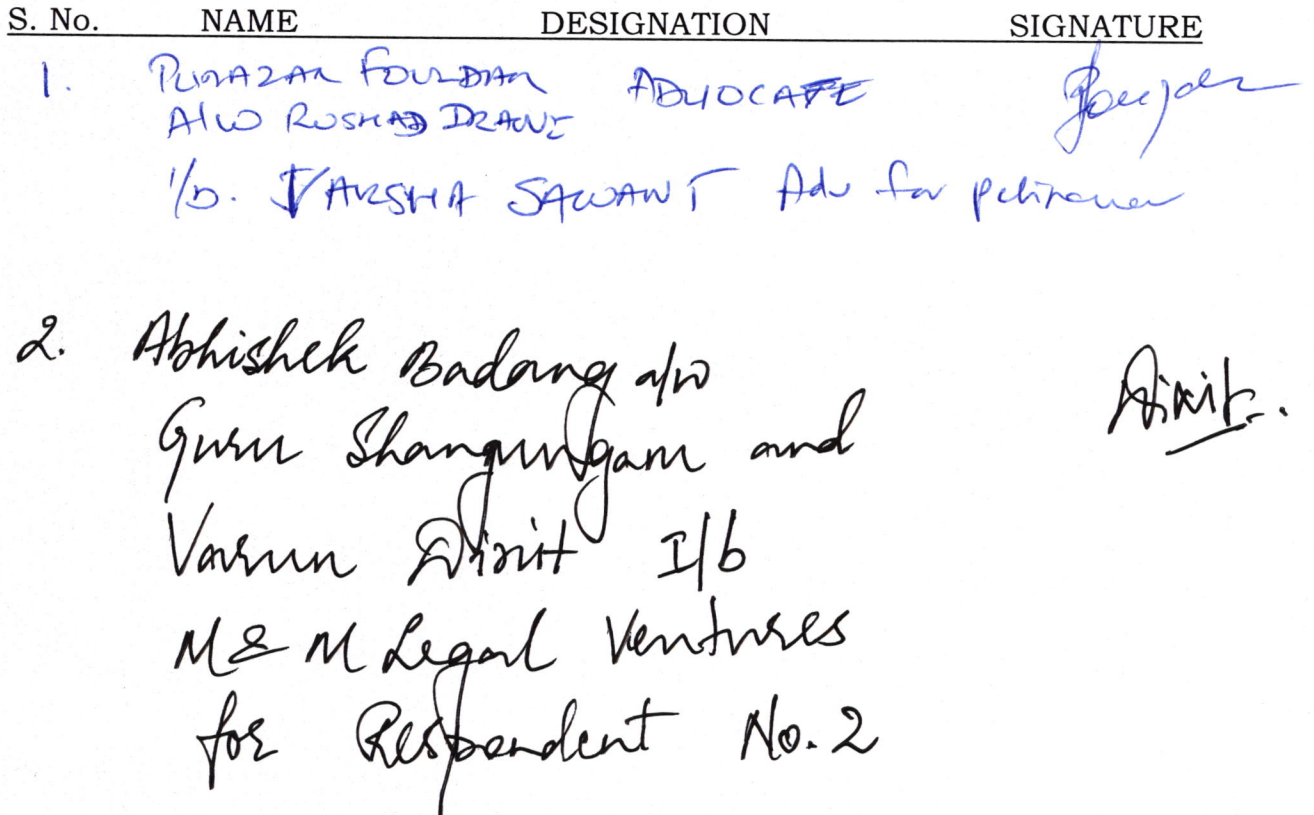 S. No. NAME DESIGNATION SIGNATURE
1. FOUZDAR ADVOCATE
A/W
I/b. VARSHA SAWANT Adv for petitioner
2. Abhishek Badang a/w
Guru Shangungam and
Varun Dixit I/b
M & M Legal Ventures
for Respondent No. 2
Dixit